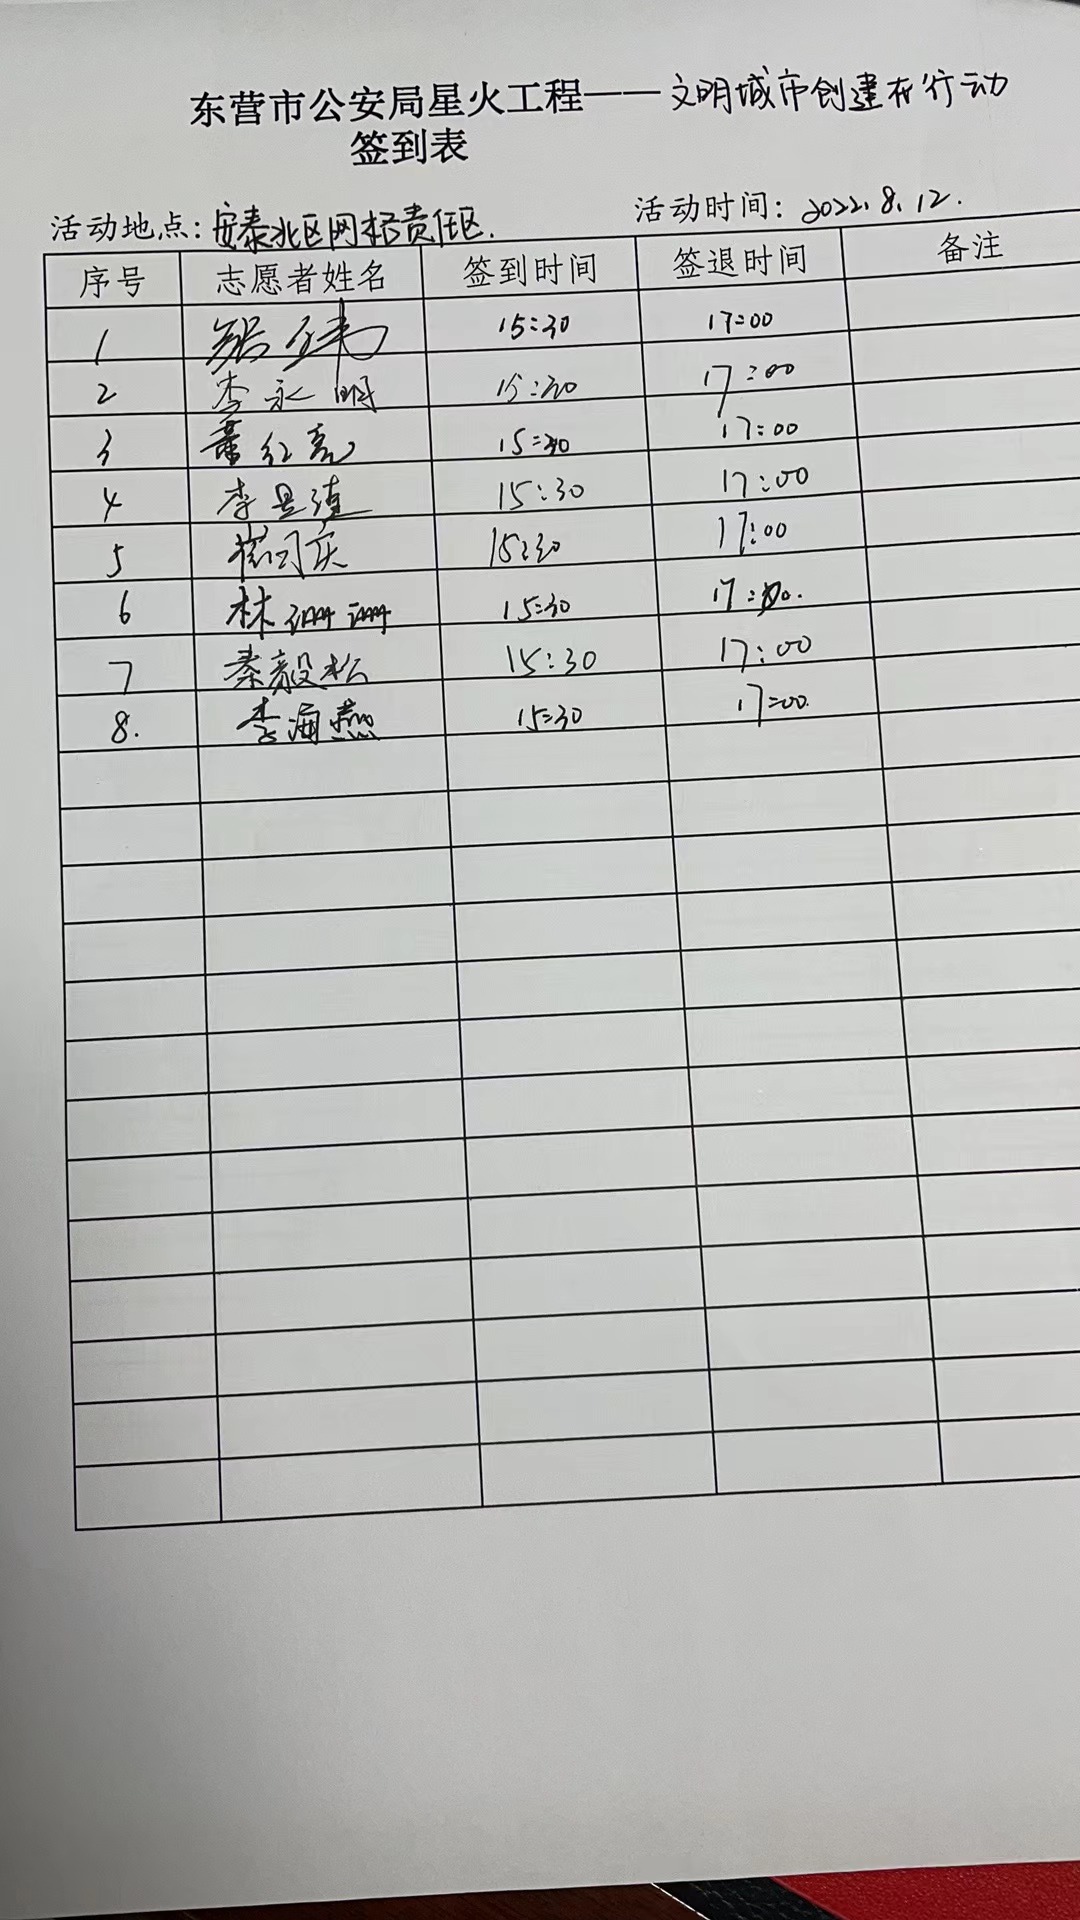 东营市公安局星火工程——文明城市创建在行动
签到表
活动地点：安泰北区网格责任区. 活动时间：2022.8.12.
序号 志愿者姓名 签到时间 签退时间 备注
1 15:30 17:00
2 李永明 15:30 17:00
3 董红亮 15:30 17:00
4 李 15:30 17:00
5 15:30 17:00
6 林珊珊 15:30 17:00.
7 秦毅松 15:30 17:00
8. 李海燕 15:30 17:00.